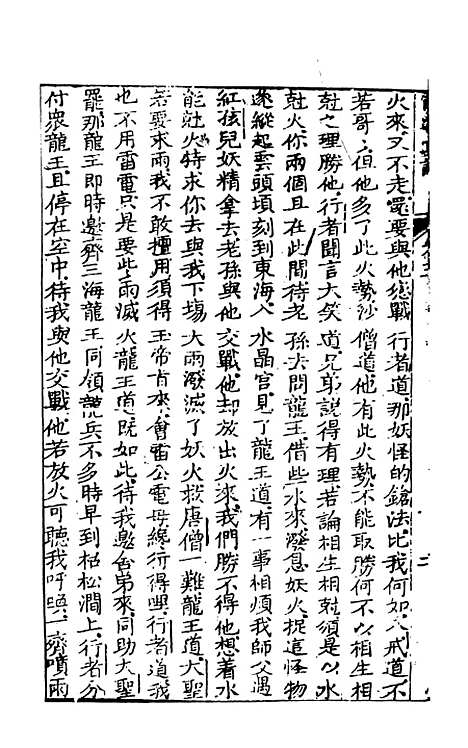 火來又不走還要與他後戰行者道那妖怪的鎗法比我何如八戒道不
若哥但他多了此火勢沙僧道他有此火勢不能取勝何不以相生相
尅之理勝他行者聞言大笑道兄弟說得有理若論相生相尅須是以水
尅火你兩個且在此間待老孫去問龍王借些水來潑息妖火捉這怪物
遂縱起雲頭頃刻到東海入水晶宮見了龍王道有一事相煩我師父遇
紅孩兒妖精拿去老孫與他交戰他却放出火來我們勝不得他想着水
能尅火特求你去與我下塲大雨潑滅了妖火救唐僧一難龍王道大聖
若要求雨我不敢擅用須得玉帝旨來會雷公電母緣行得哩行者道我
也不用雷電只是要些雨滅火龍王道既如此待我邀舍弟來同助大聖
罷那龍王即時邀齊三海龍王同領龍兵不多時早到枯松澗上行者分
付衆龍王且停在空中待我與他交戰他若放火可聽我呼喚一齊噴雨